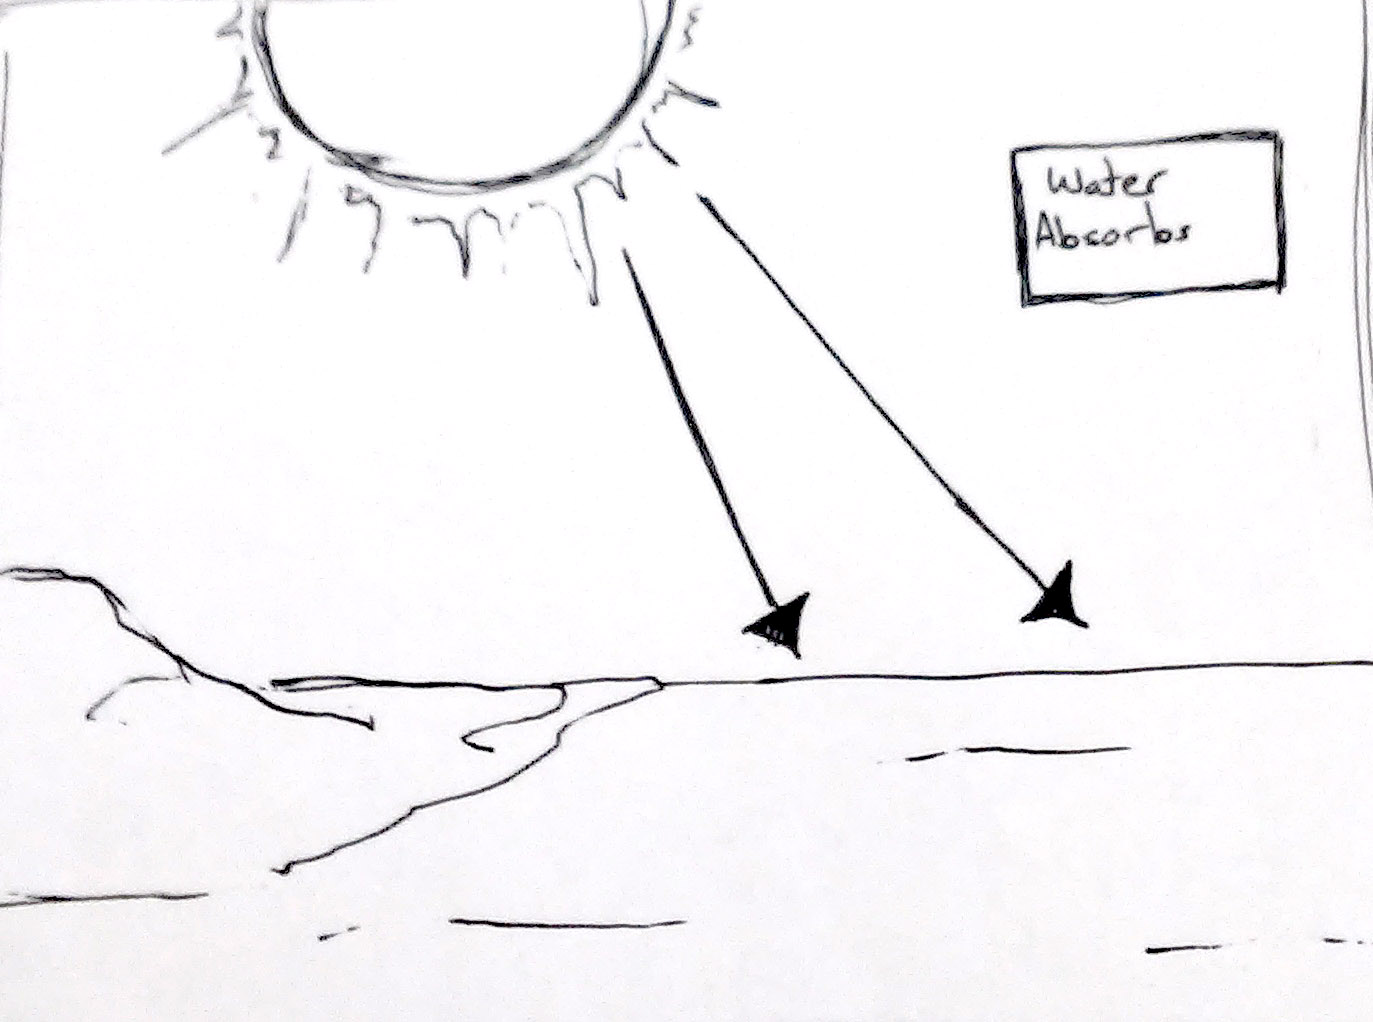 Water
Absorbs